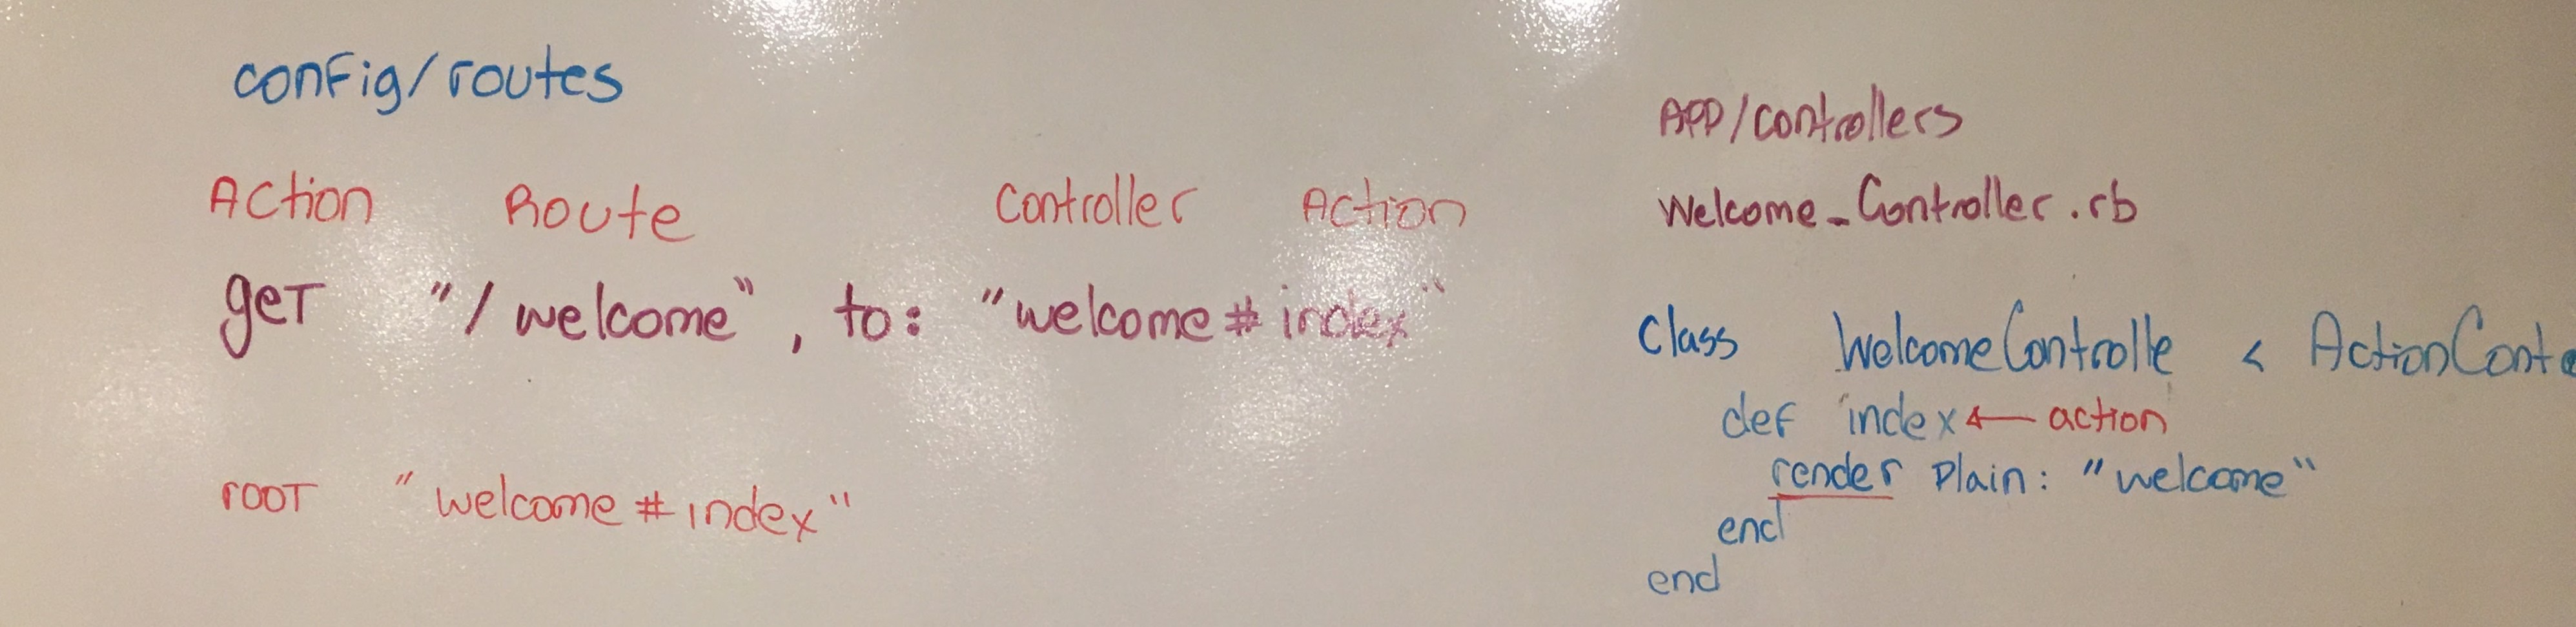 config/routes
Action Route Controller Action
get "/welcome", to: "welcome#index"
root "welcome#index"
App/controllers
Welcome_Controller.rb
Class WelcomeControlle < ActionCont
def index ← action
render Plain: "welcome"
end
end